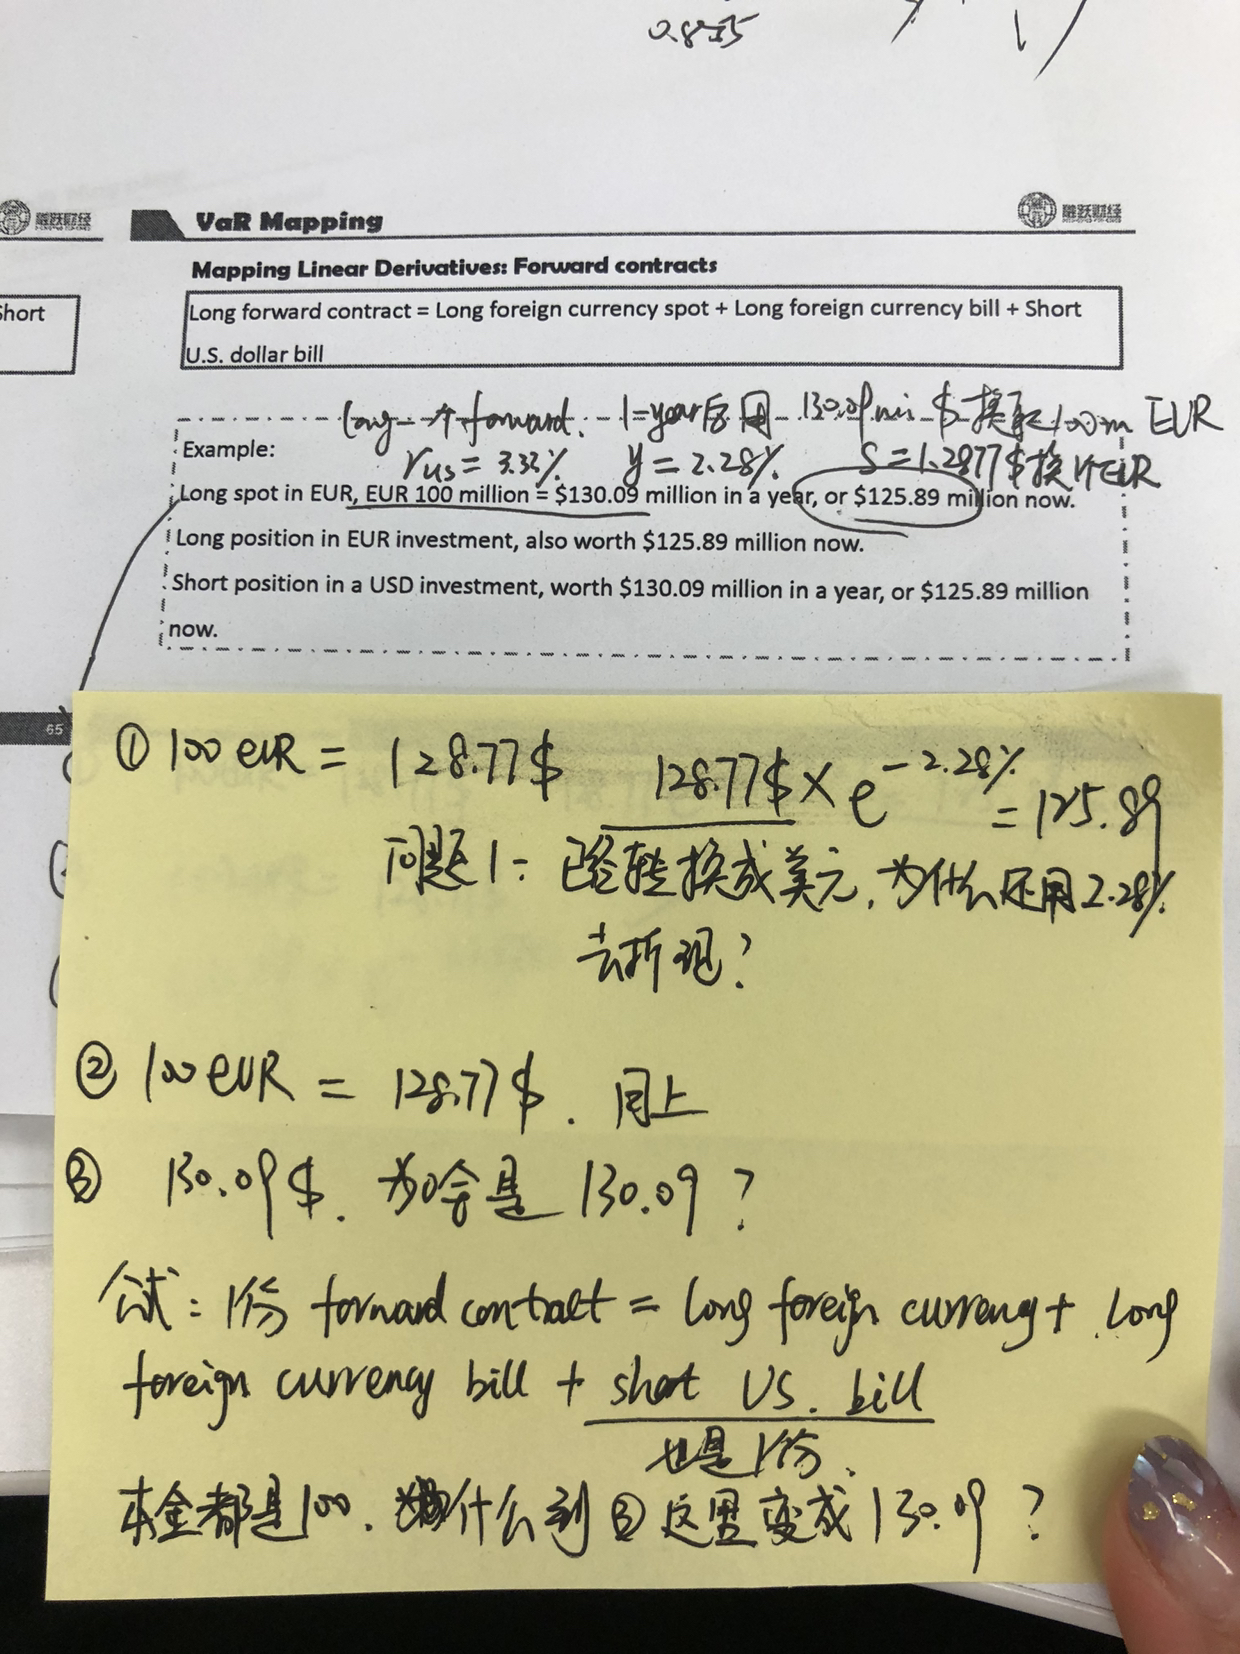 0.825
融跃财经
VaR Mapping
融跃财经
Mapping Linear Derivatives: Forward contracts
Short
Long forward contract = Long foreign currency spot + Long foreign currency bill + Short
U.S. dollar bill
long 一个 forward. 1-year后用 130.09 mil $ 换取 100m EUR
Example:
rus = 3.33% y = 2.28% S = 1.2877$换1个EUR
Long spot in EUR, EUR 100 million = $130.09 million in a year, or $125.89 million now.
Long position in EUR investment, also worth $125.89 million now.
Short position in a USD investment, worth $130.09 million in a year, or $125.89 million
now.
65
① 100 EUR = 128.77$ 128.77$ × e^-2.28% = 125.89
问题1: 已经转换成美元,为什么还用2.28%
去折现?
② 100 EUR = 128.77$. 同上
③ 130.09$. 为啥会是 130.09?
公式: 1份 forward contract = long foreign currency + Long
foreign currency bill + short US. bill
也是1份.
本金都是100. 为什么到③这里变成130.09?